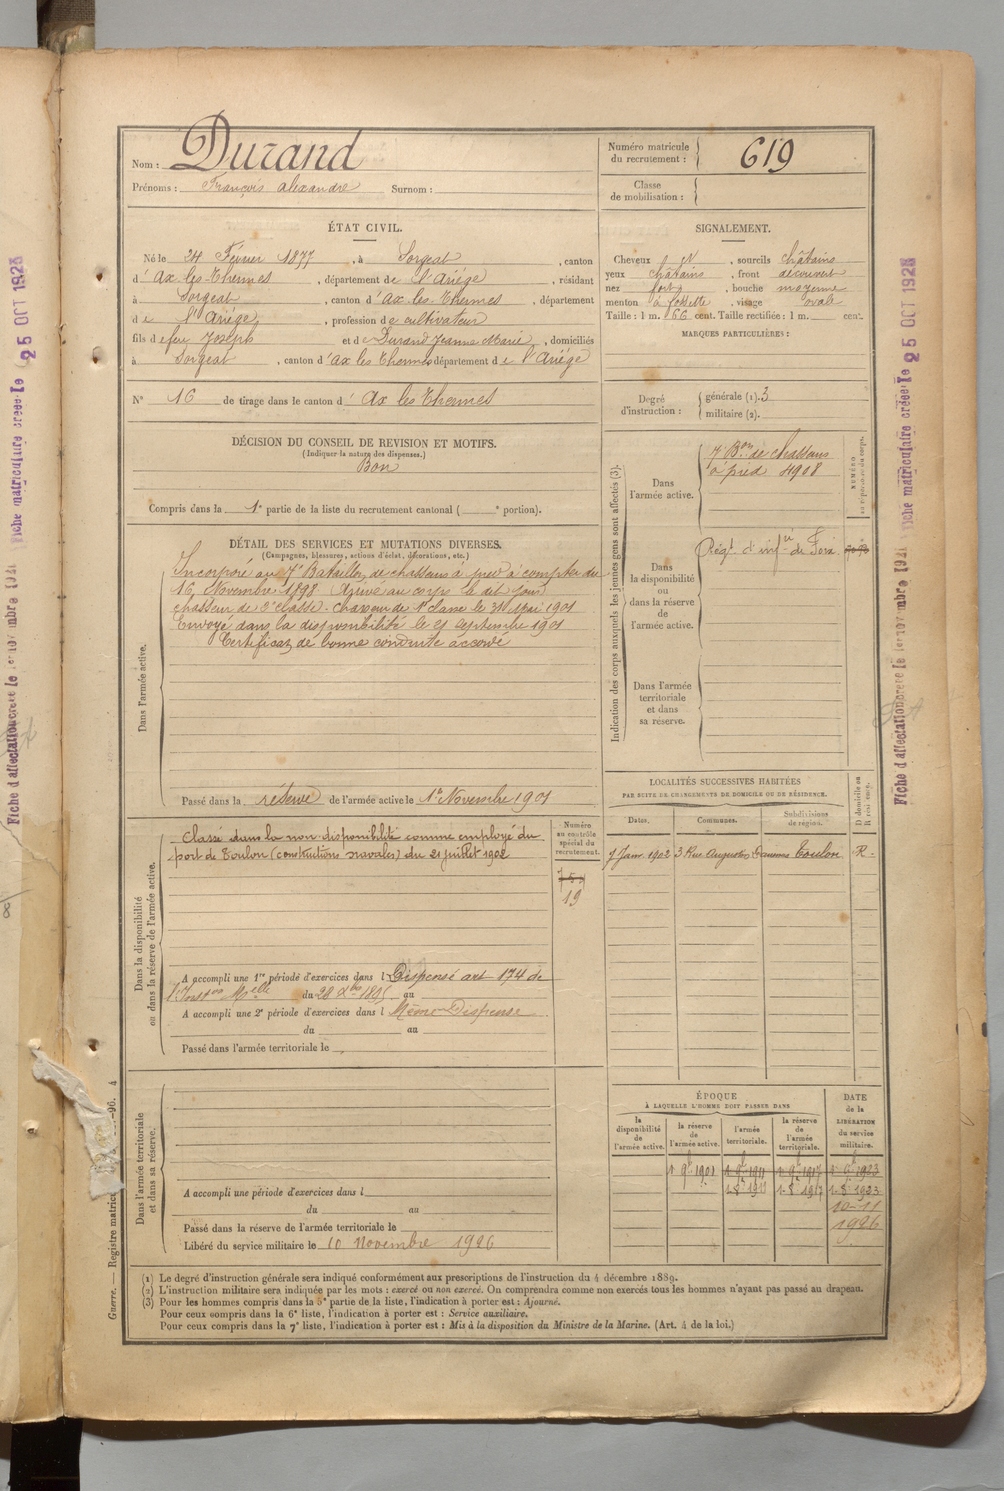 Nom : Durand
Prénoms : François alexandre Surnom :
Numéro matricule du recrutement : 619
Classe de mobilisation :
ÉTAT CIVIL.
Né le 24 Février 1877, à Sorgeat, canton
d'Ax-les-Thermes, département de l'Ariége, résidant
à Sorgeat, canton d'Ax-les-Thermes, département
de l'Ariége, profession de cultivateur
fils de feu Joseph et de Durand Jeanne Marie, domiciliés
à Sorgeat, canton d'Ax les Thermes département de l'Ariége
N° 16 de tirage dans le canton d'Ax les Thermes
SIGNALEMENT.
Cheveux , sourcils châtains
yeux châtains, front découvert
nez fort, bouche moyenne
menton à fossette, visage ovale
Taille : 1 m. 66 cent. Taille rectifiée : 1 m. cent.
MARQUES PARTICULIÈRES :
Degré d'instruction : générale (1). 3
militaire (2).
DÉCISION DU CONSEIL DE REVISION ET MOTIFS.
(Indiquer la nature des dispenses.)
Bon
Compris dans la 1e partie de la liste du recrutement cantonal ( e portion).
DÉTAIL DES SERVICES ET MUTATIONS DIVERSES.
(Campagnes, blessures, actions d'éclat, décorations, etc.)
Dans l'armée active.
Incorporé au 7e Bataillon de chasseurs à pied à compter du
16 Novembre 1898 Arrivé au corps le dit jour
chasseur de 2e classe. Chasseur de 1e classe le 31 Mai 1901
Envoyé dans la disponibilité le 21 septembre 1901
Certificat de bonne conduite accordé
Passé dans la réserve de l'armée active le 1er Novembre 1901
Indication des corps auxquels les jeunes gens sont affectés (3).
Dans l'armée active.
7e Bon de chasseurs
à pied 4908
NUMÉRO
Dans la disponibilité ou dans la réserve de l'armée active.
Régt d'infie de Foix
Dans l'armée territoriale et dans sa réserve.
LOCALITÉS SUCCESSIVES HABITÉES
PAR SUITE DE CHANGEMENTS DE DOMICILE OU DE RÉSIDENCE.
Dates. Communes. Subdivisions de région. D domicile ou R résidence.
7 Janv. 1902 3 Rue Augustin Daumas Toulon R.
Dans la disponibilité ou dans la réserve de l'armée active.
Classé dans la non disponibilité comme employé du
port de Toulon (constructions navales) du 21 juillet 1902
Numéro au contrôle spécial du recrutement.
19
A accompli une 1re période d'exercices dans l Dispensé art 174 de
l'Inston Melle du 28 Xbre 1895 au
A accompli une 2e période d'exercices dans l Même Dispense
du au
Passé dans l'armée territoriale le
Dans l'armée territoriale et dans sa réserve.
A accompli une période d'exercices dans l
du au
Passé dans la réserve de l'armée territoriale le
Libéré du service militaire le 10 Novembre 1926
ÉPOQUE
À LAQUELLE L'HOMME DOIT PASSER DANS
la disponibilité de l'armée active. la réserve de l'armée active. l'armée territoriale. la réserve de l'armée territoriale.
DATE de la LIBÉRATION du service militaire.
1. 9bre 1901 1. 9bre 1911 1. 9bre 1917 1. 9bre 1923
1. 8bre 1911 1. 8bre 1917 1. 8bre 1923
10-11
1926
(1) Le degré d'instruction générale sera indiqué conformément aux prescriptions de l'instruction du 4 décembre 1889.
(2) L'instruction militaire sera indiquée par les mots : exercé ou non exercé. On comprendra comme non exercés tous les hommes n'ayant pas passé au drapeau.
(3) Pour les hommes compris dans la 5e partie de la liste, l'indication à porter est : Ajourné.
Pour ceux compris dans la 6e liste, l'indication à porter est : Service auxiliaire.
Pour ceux compris dans la 7e liste, l'indication à porter est : Mis à la disposition du Ministre de la Marine. (Art. 4 de la loi.)
Guerre. — Registre matric -96. 4
Fiche matriculaire créée le 25 OCT 1928
Fiche d'affectation créée le 1er novembre 1921
Fiche matriculaire créée le 25 OCT 1928
Fiche d'affectation créée le 1er novembre 1921